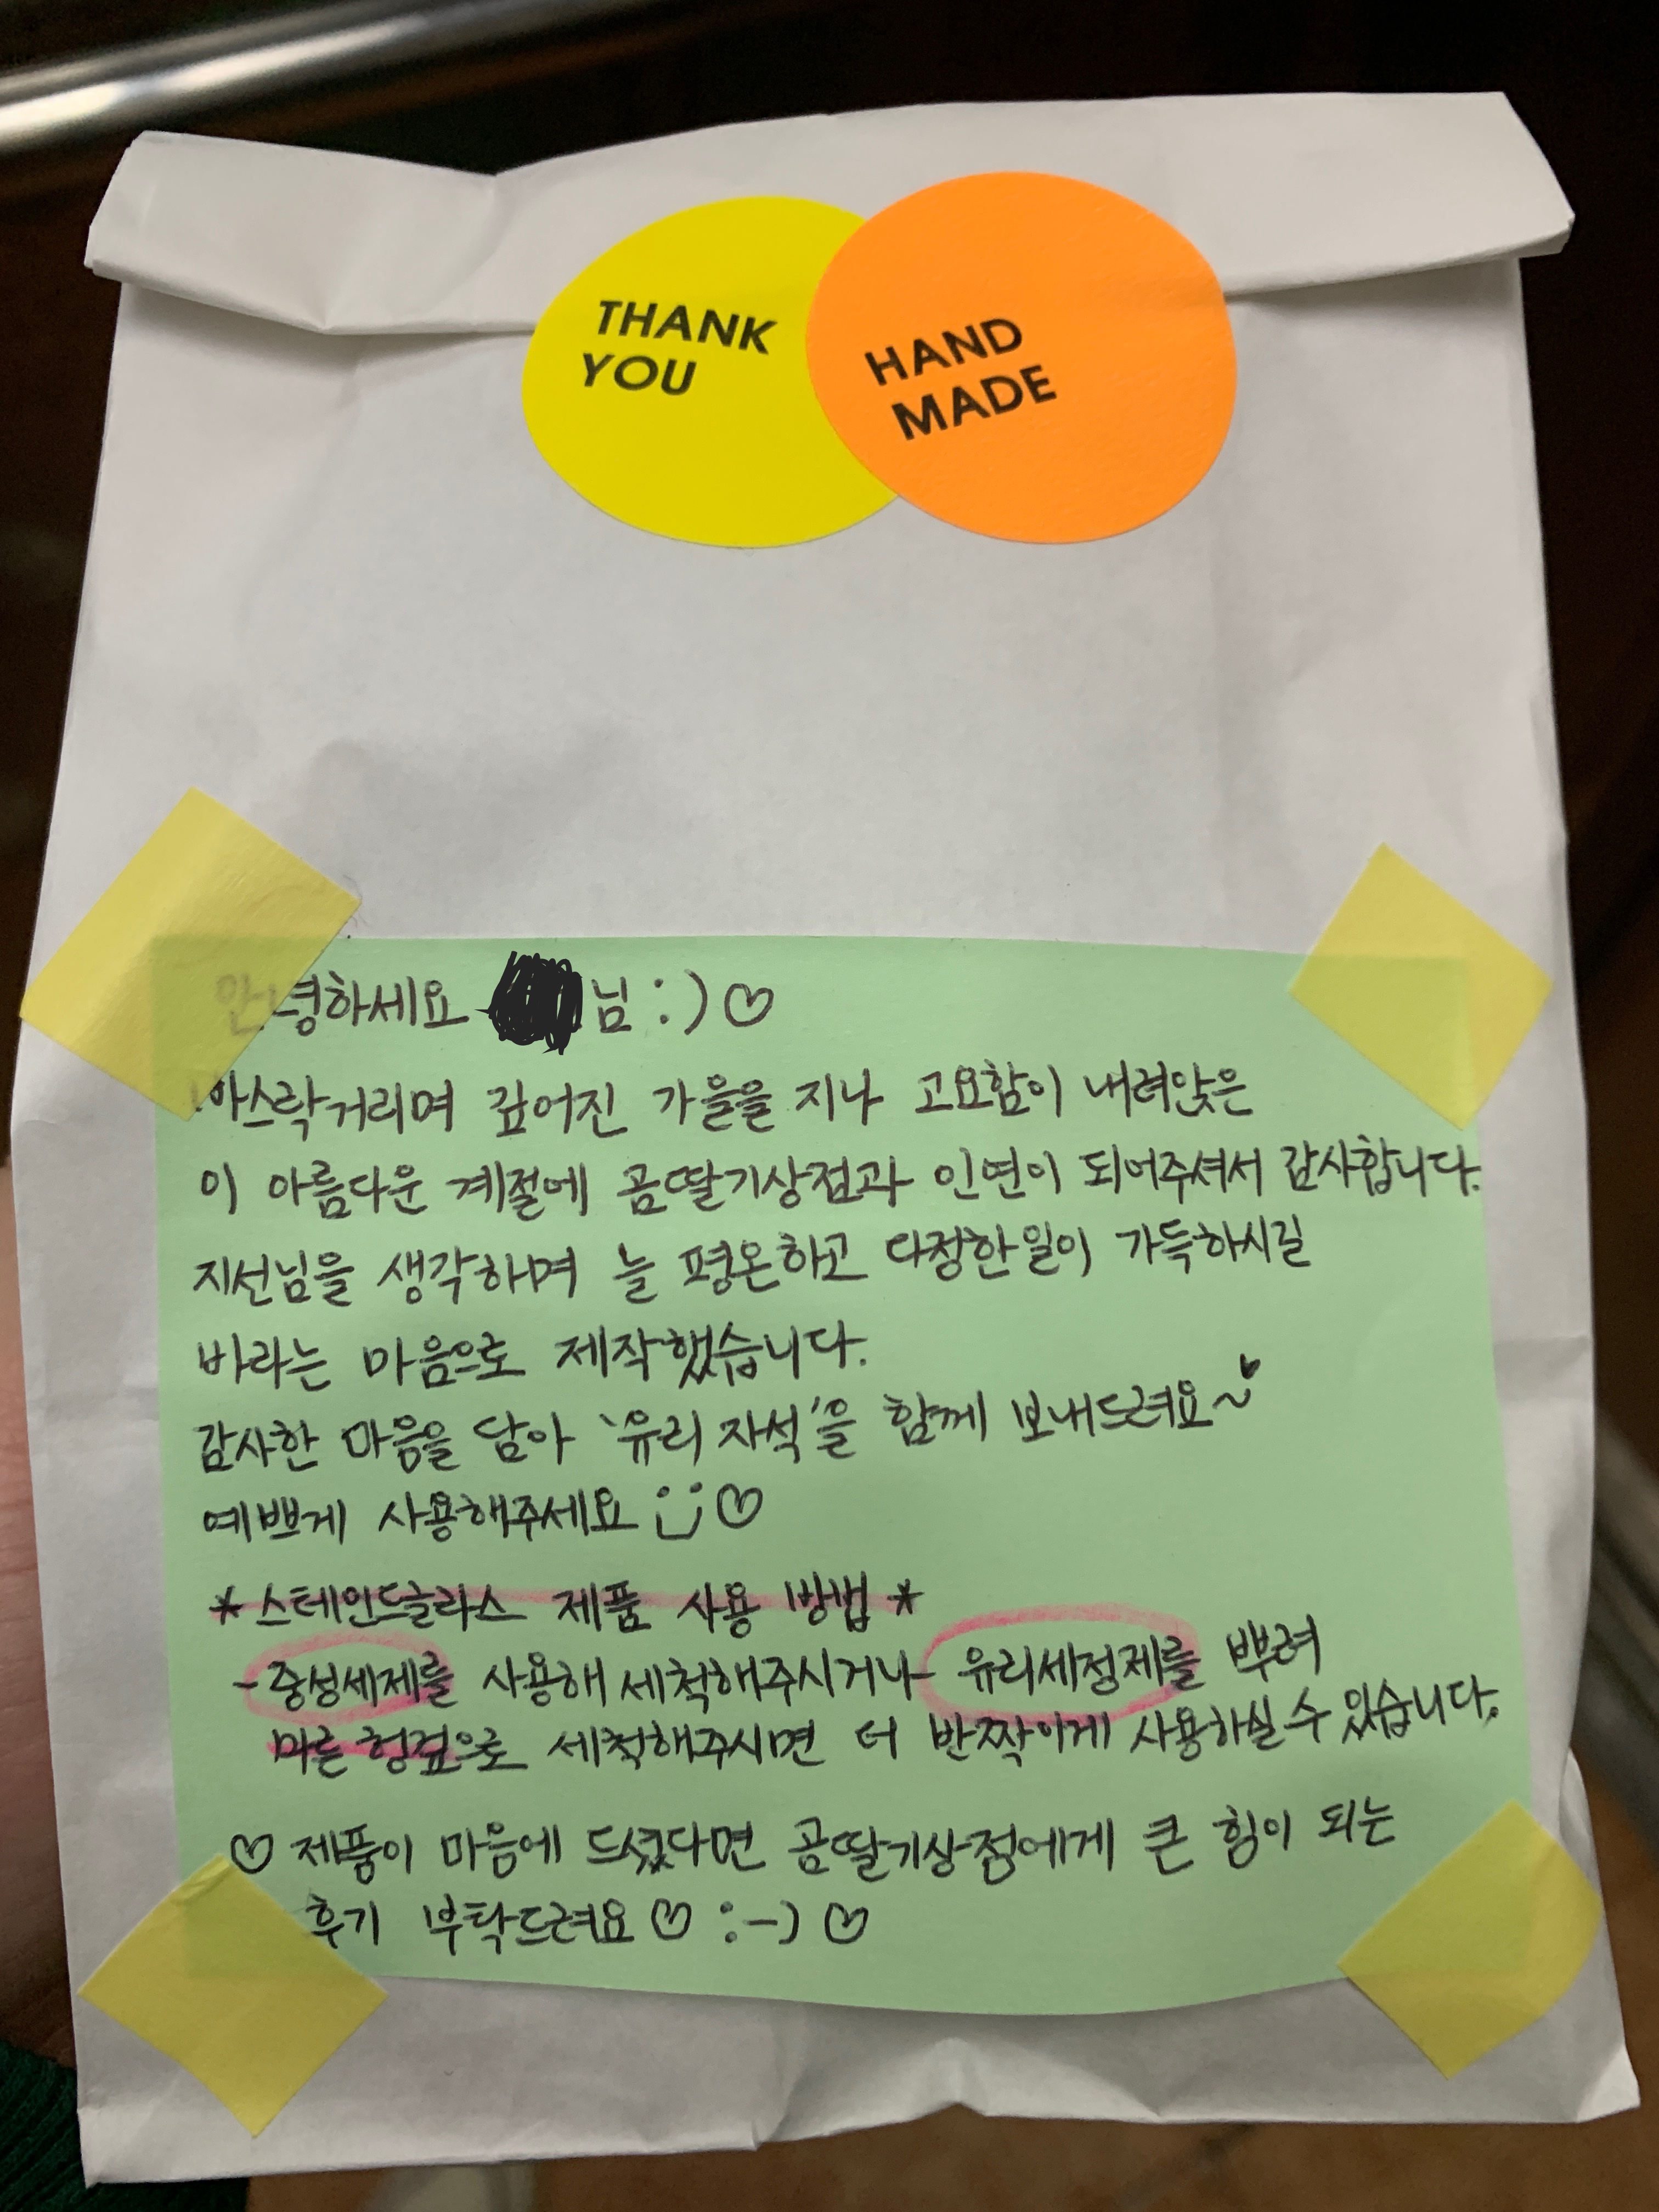 THANK
YOU
HAND
MADE
안녕하세요 님 :) ♡
바스락거리며 깊어진 가을을 지나 고요함이 내려앉은
이 아름다운 계절에 곰딸기상점과 인연이 되어주셔서 감사합니다.
지선님을 생각하며 늘 평온하고 다정한일이 가득하시길
바라는 마음으로 제작했습니다.
감사한 마음을 담아 '유리 자석'을 함께 보내드려요~♥
예쁘게 사용해주세요 :) ♡
* 스테인드글라스 제품 사용 방법 *
- 중성세제를 사용해 세척해주시거나 유리세정제를 뿌려
마른 헝겊으로 세척해주시면 더 반짝이게 사용하실 수 있습니다.
♡ 제품이 마음에 드셨다면 곰딸기상점에게 큰 힘이 되는
후기 부탁드려요 ♡ :-) ♡